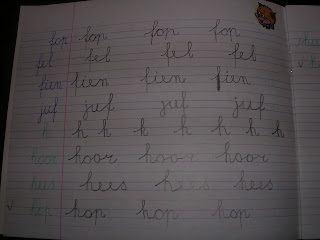 fop fop fop fop
fel fel fel fel
fien fien fien fien
juf juf juf juf
h h h h h h h h
hoor hoor hoor hoor
hees hees hees hees
hop hop hop hop